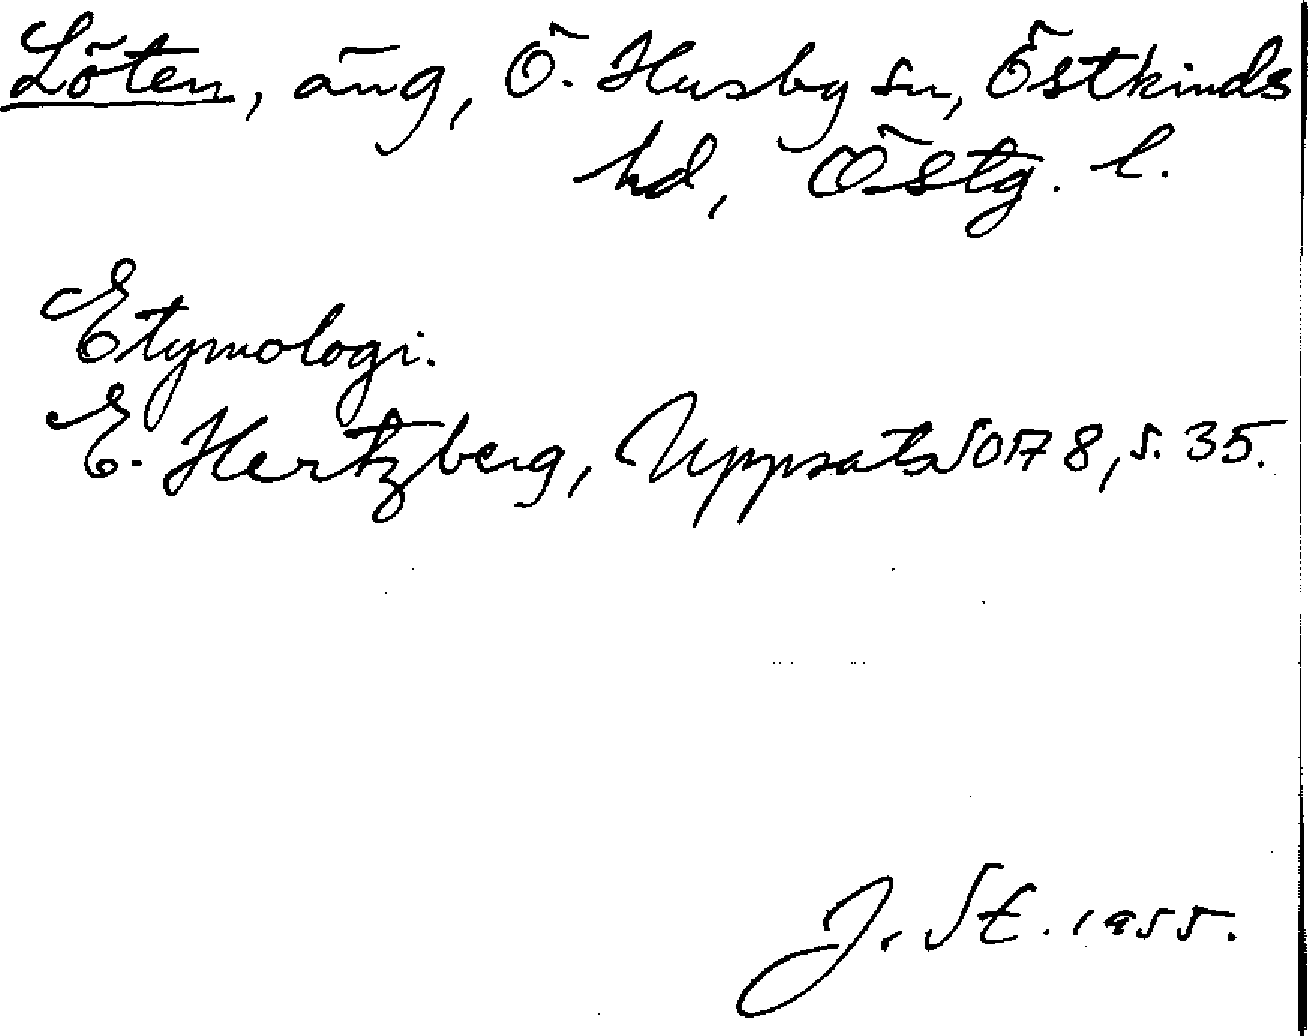 Löten, äng, Ö. Husby sn, Östkinds
hd, Östg. l.
Etymologi.
E. Hertzberg, Uppsats SOA 8, s. 35.
J. St. 1955.